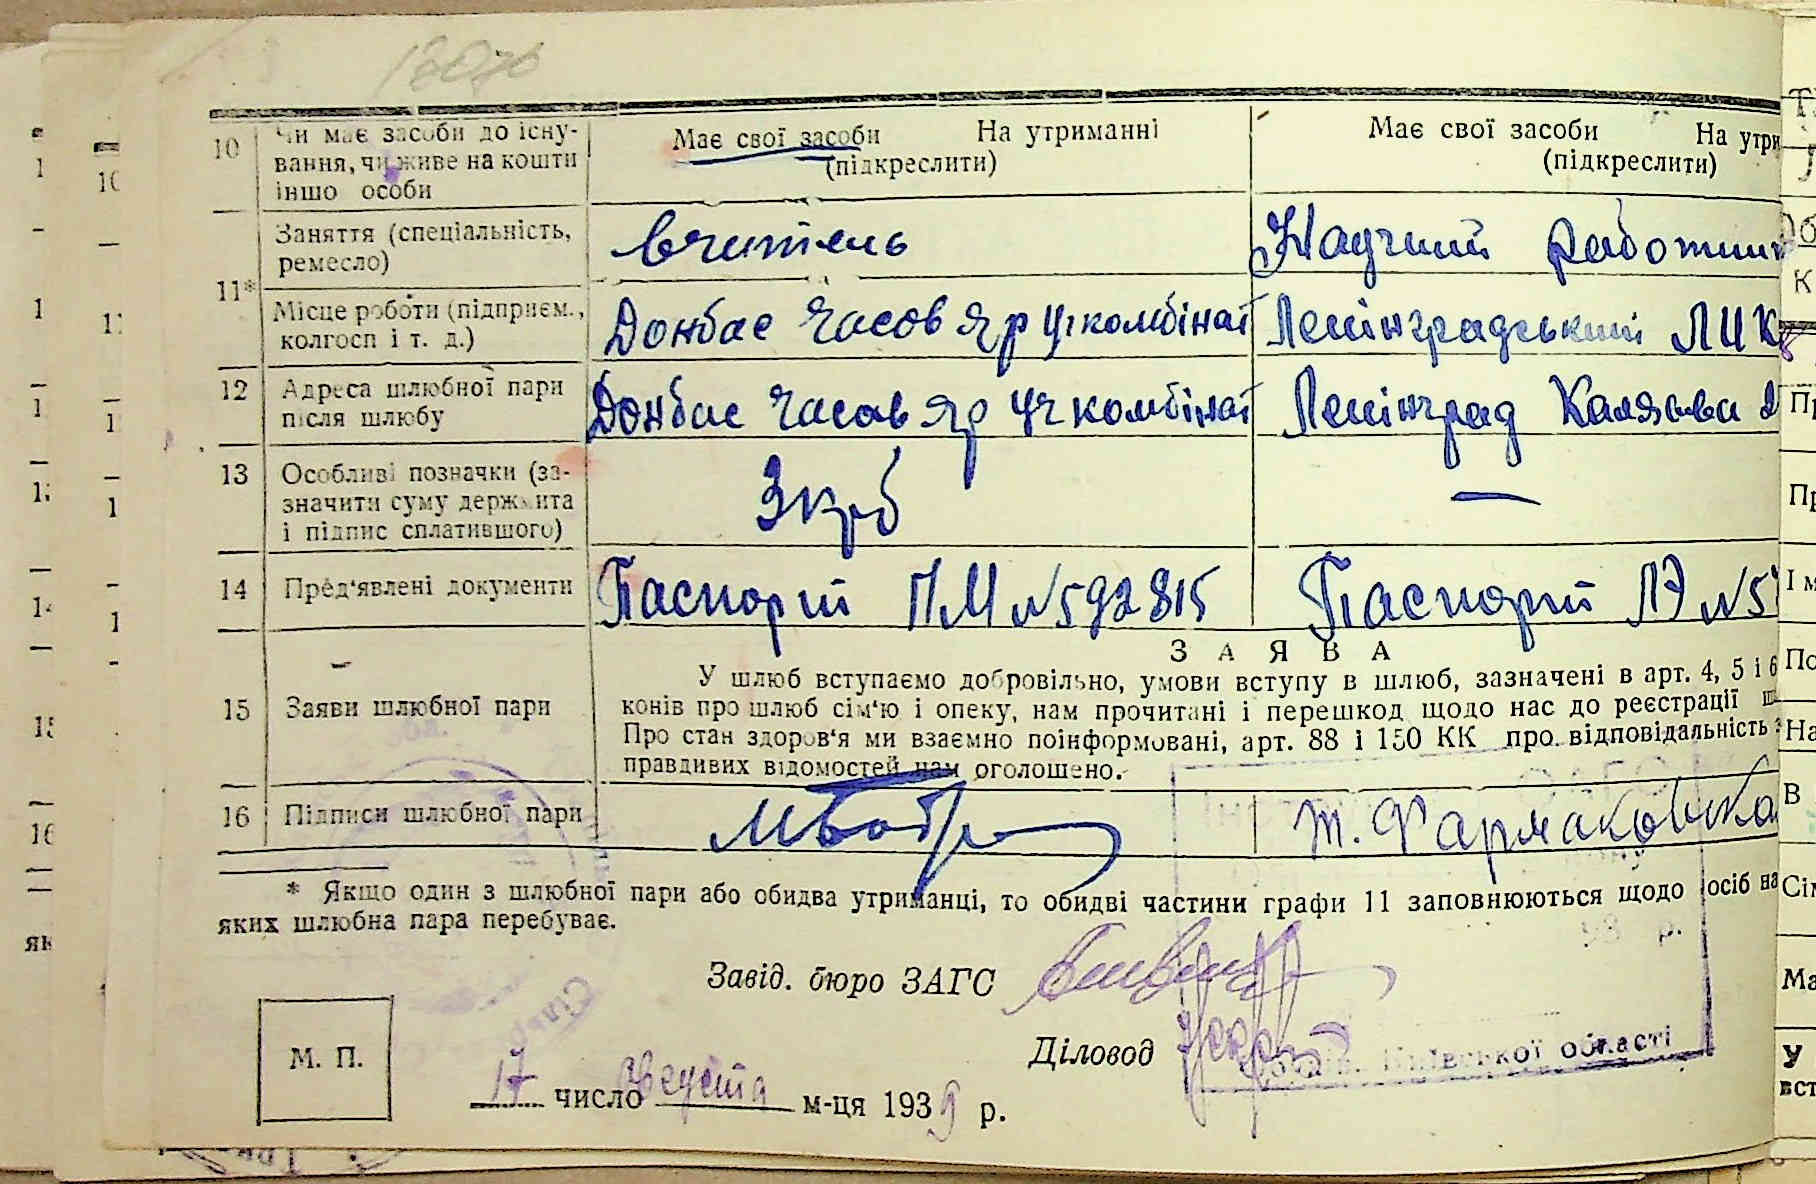 10 Чи має засоби до існу-
вання, чи живе на кошти
іншо особи
Має свої засоби На утриманні
(підкреслити)
Має свої засоби На утри
(підкреслити)
11*
Заняття (спеціальність,
ремесло)
вчитель
Научний работник
Місце роботи (підприєм.,
колгосп і т. д.)
Донбас Часов Яр Учкомбінат
Ленінградський ЛИК
12 Адреса шлюбної пари
після шлюбу
Донбас Часов Яр Учкомбінат
Ленінград Каляєва 2
13 Особливі позначки (за-
значити суму держмита
і підпис сплатившого)
3 крб
—
14 Пред'явлені документи
Паспорт ПМ №592815
Паспорт ЛЭ №5
З А Я В А
15 Заяви шлюбної пари
У шлюб вступаємо добровільно, умови вступу в шлюб, зазначені в арт. 4, 5 і 6
конів про шлюб сім'ю і опеку, нам прочитані і перешкод щодо нас до реєстрації ш
Про стан здоров'я ми взаємно поінформовані, арт. 88 і 150 КК про відповідальність з
правдивих відомостей нам оголошено.
16 Підписи шлюбної пари
Т. Фармаковска
* Якщо один з шлюбної пари або обидва утриманці, то обидві частини графи 11 заповнюються щодо осіб на
яких шлюбна пара перебуває.
Завід. бюро ЗАГС
Діловод
Київської області
М. П.
17 число августа м-ця 1939 р.